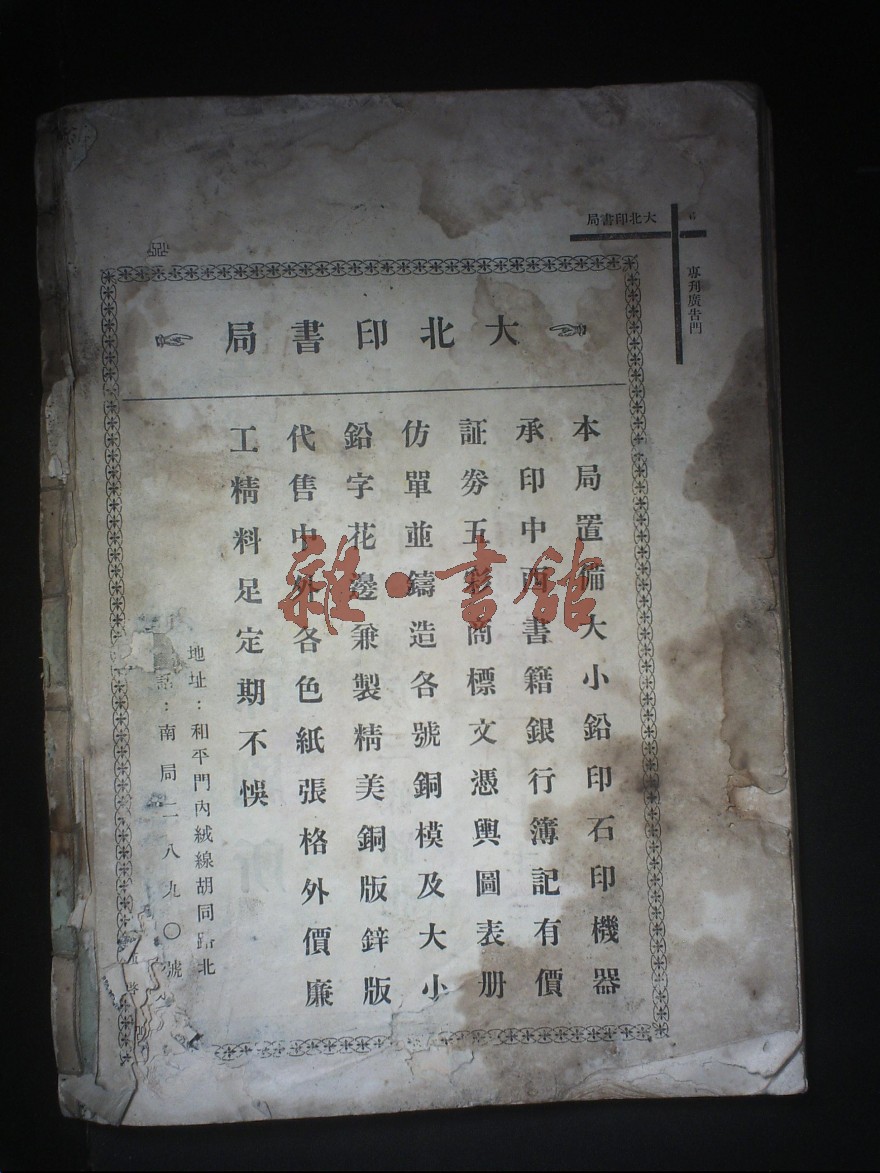 大北印書局
專刋廣告門
大北印書局
本局置備大小鉛印石印機器
承印中西書籍銀行簿記有價
証劵五彩商標文憑輿圖表册
仿單並鑄造各號銅模及大小
鉛字花邊兼製精美銅版鋅版
代售中外各色紙張格外價廉
工精料足定期不悞
地址：和平門內絨線胡同路北
話：南局二八九〇號
雜·書館